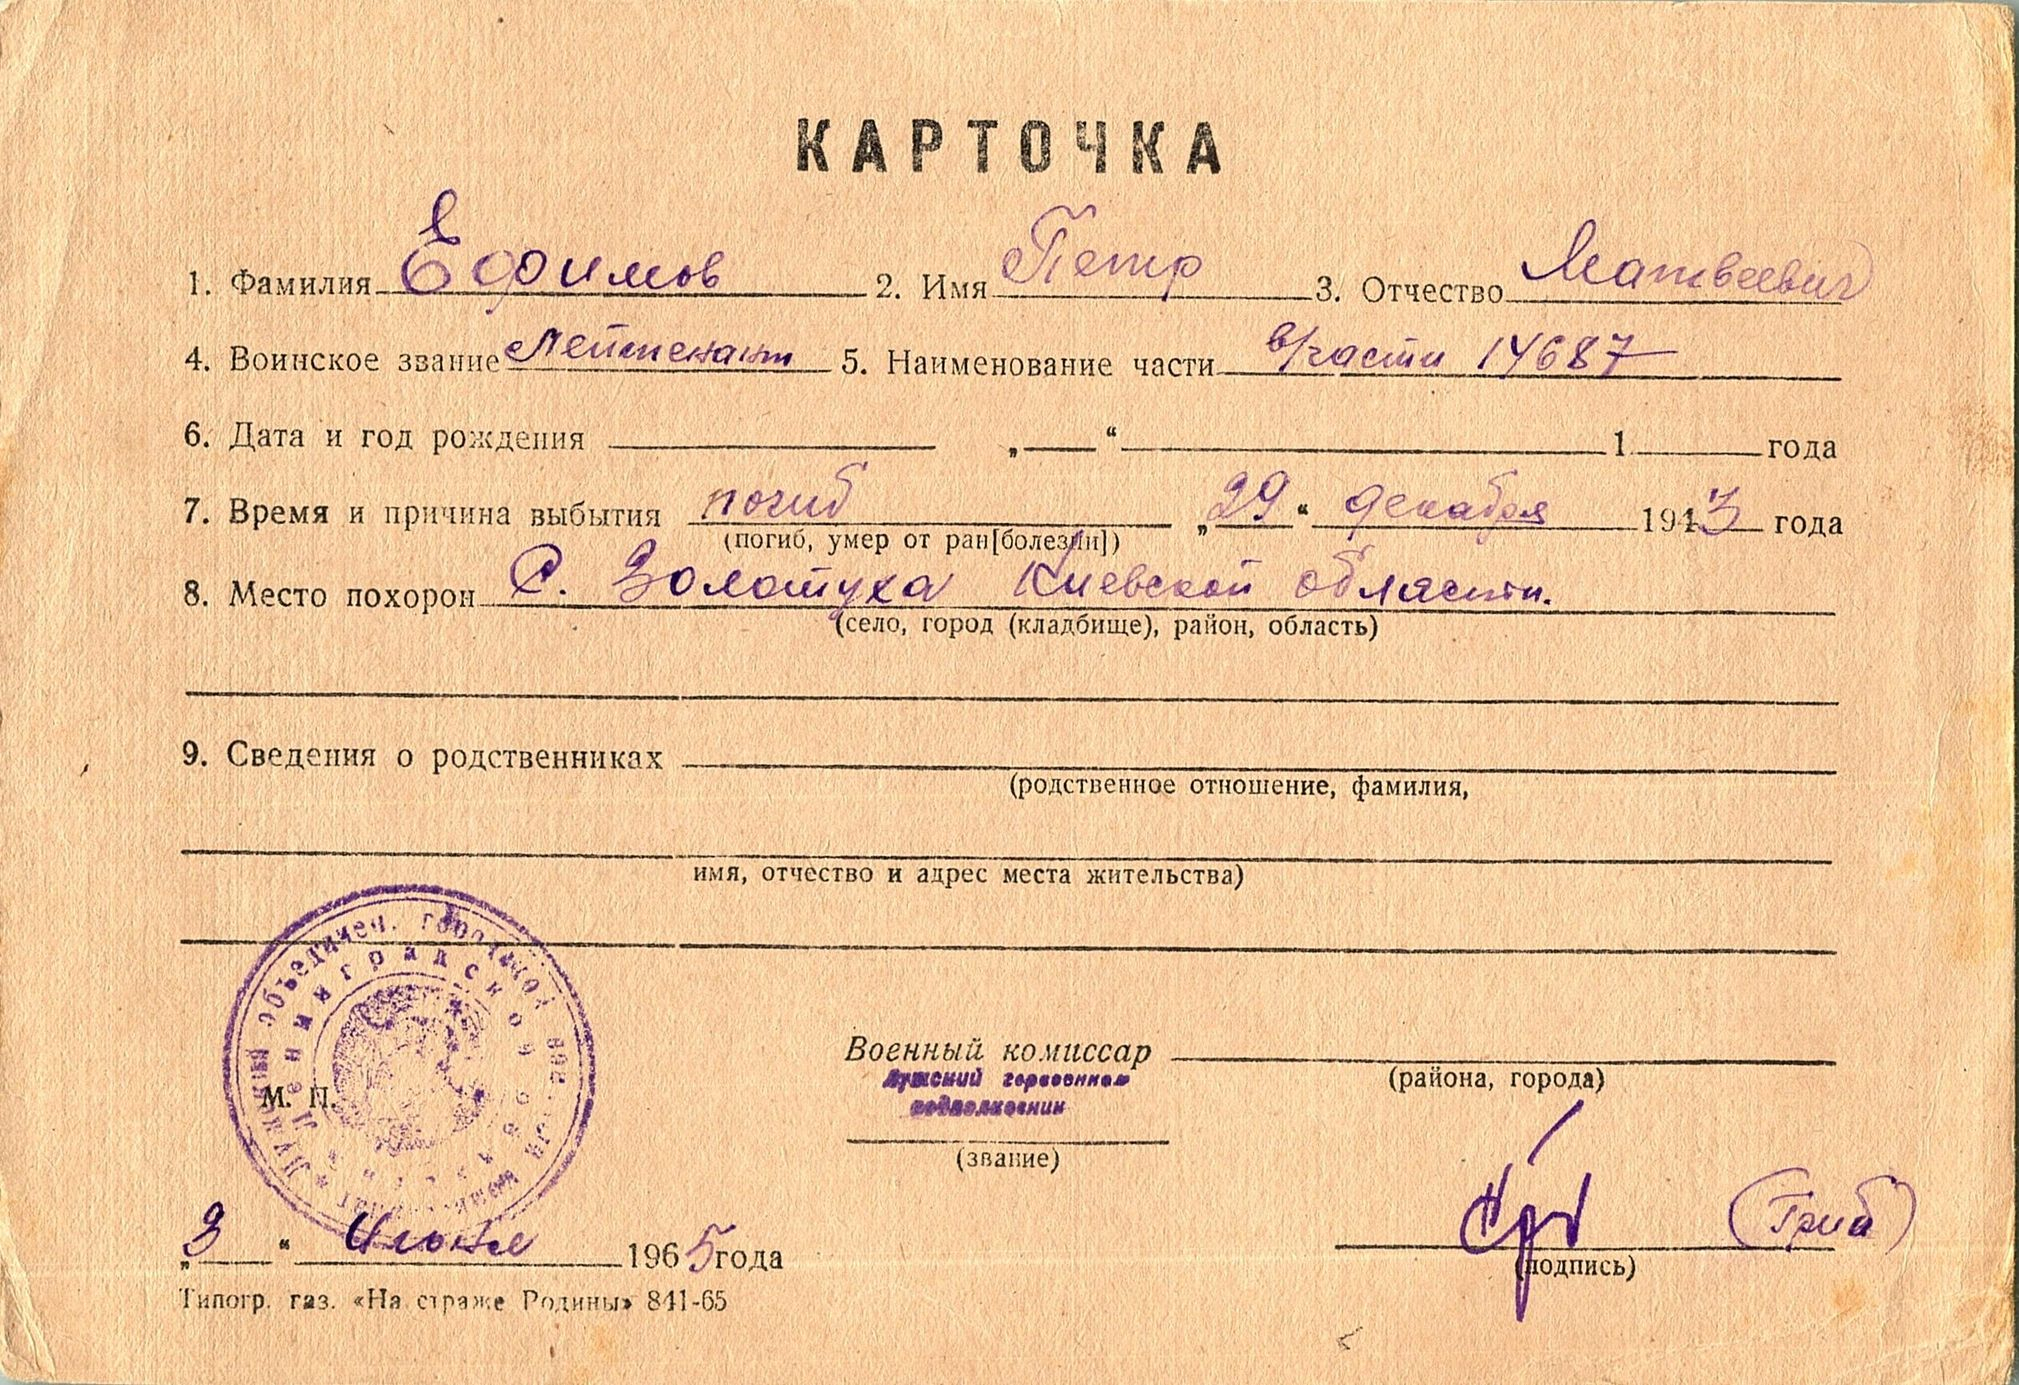 КАРТОЧКА
1. Фамилия Ефимов 2. Имя Петр 3. Отчество Матвеевич
4. Воинское звание Лейтенант 5. Наименование части в/части 14687
6. Дата и год рождения „ “ 1 года
7. Время и причина выбытия погиб „29“ декабря 1943 года
(погиб, умер от ран[болезни])
8. Место похорон С. Золотуха Киевской области.
(село, город (кладбище), район, область)
9. Сведения о родственниках
(родственное отношение, фамилия,
имя, отчество и адрес места жительства)
объединен. городской
Ленинградской
М. П.
Военный комиссар
(района, города)
Лужский горвоенком
подполковник
(звание)
„3“ Июня 1965 года
(Гриб)
(подпись)
Типогр. газ. «На страже Родины» 841-65